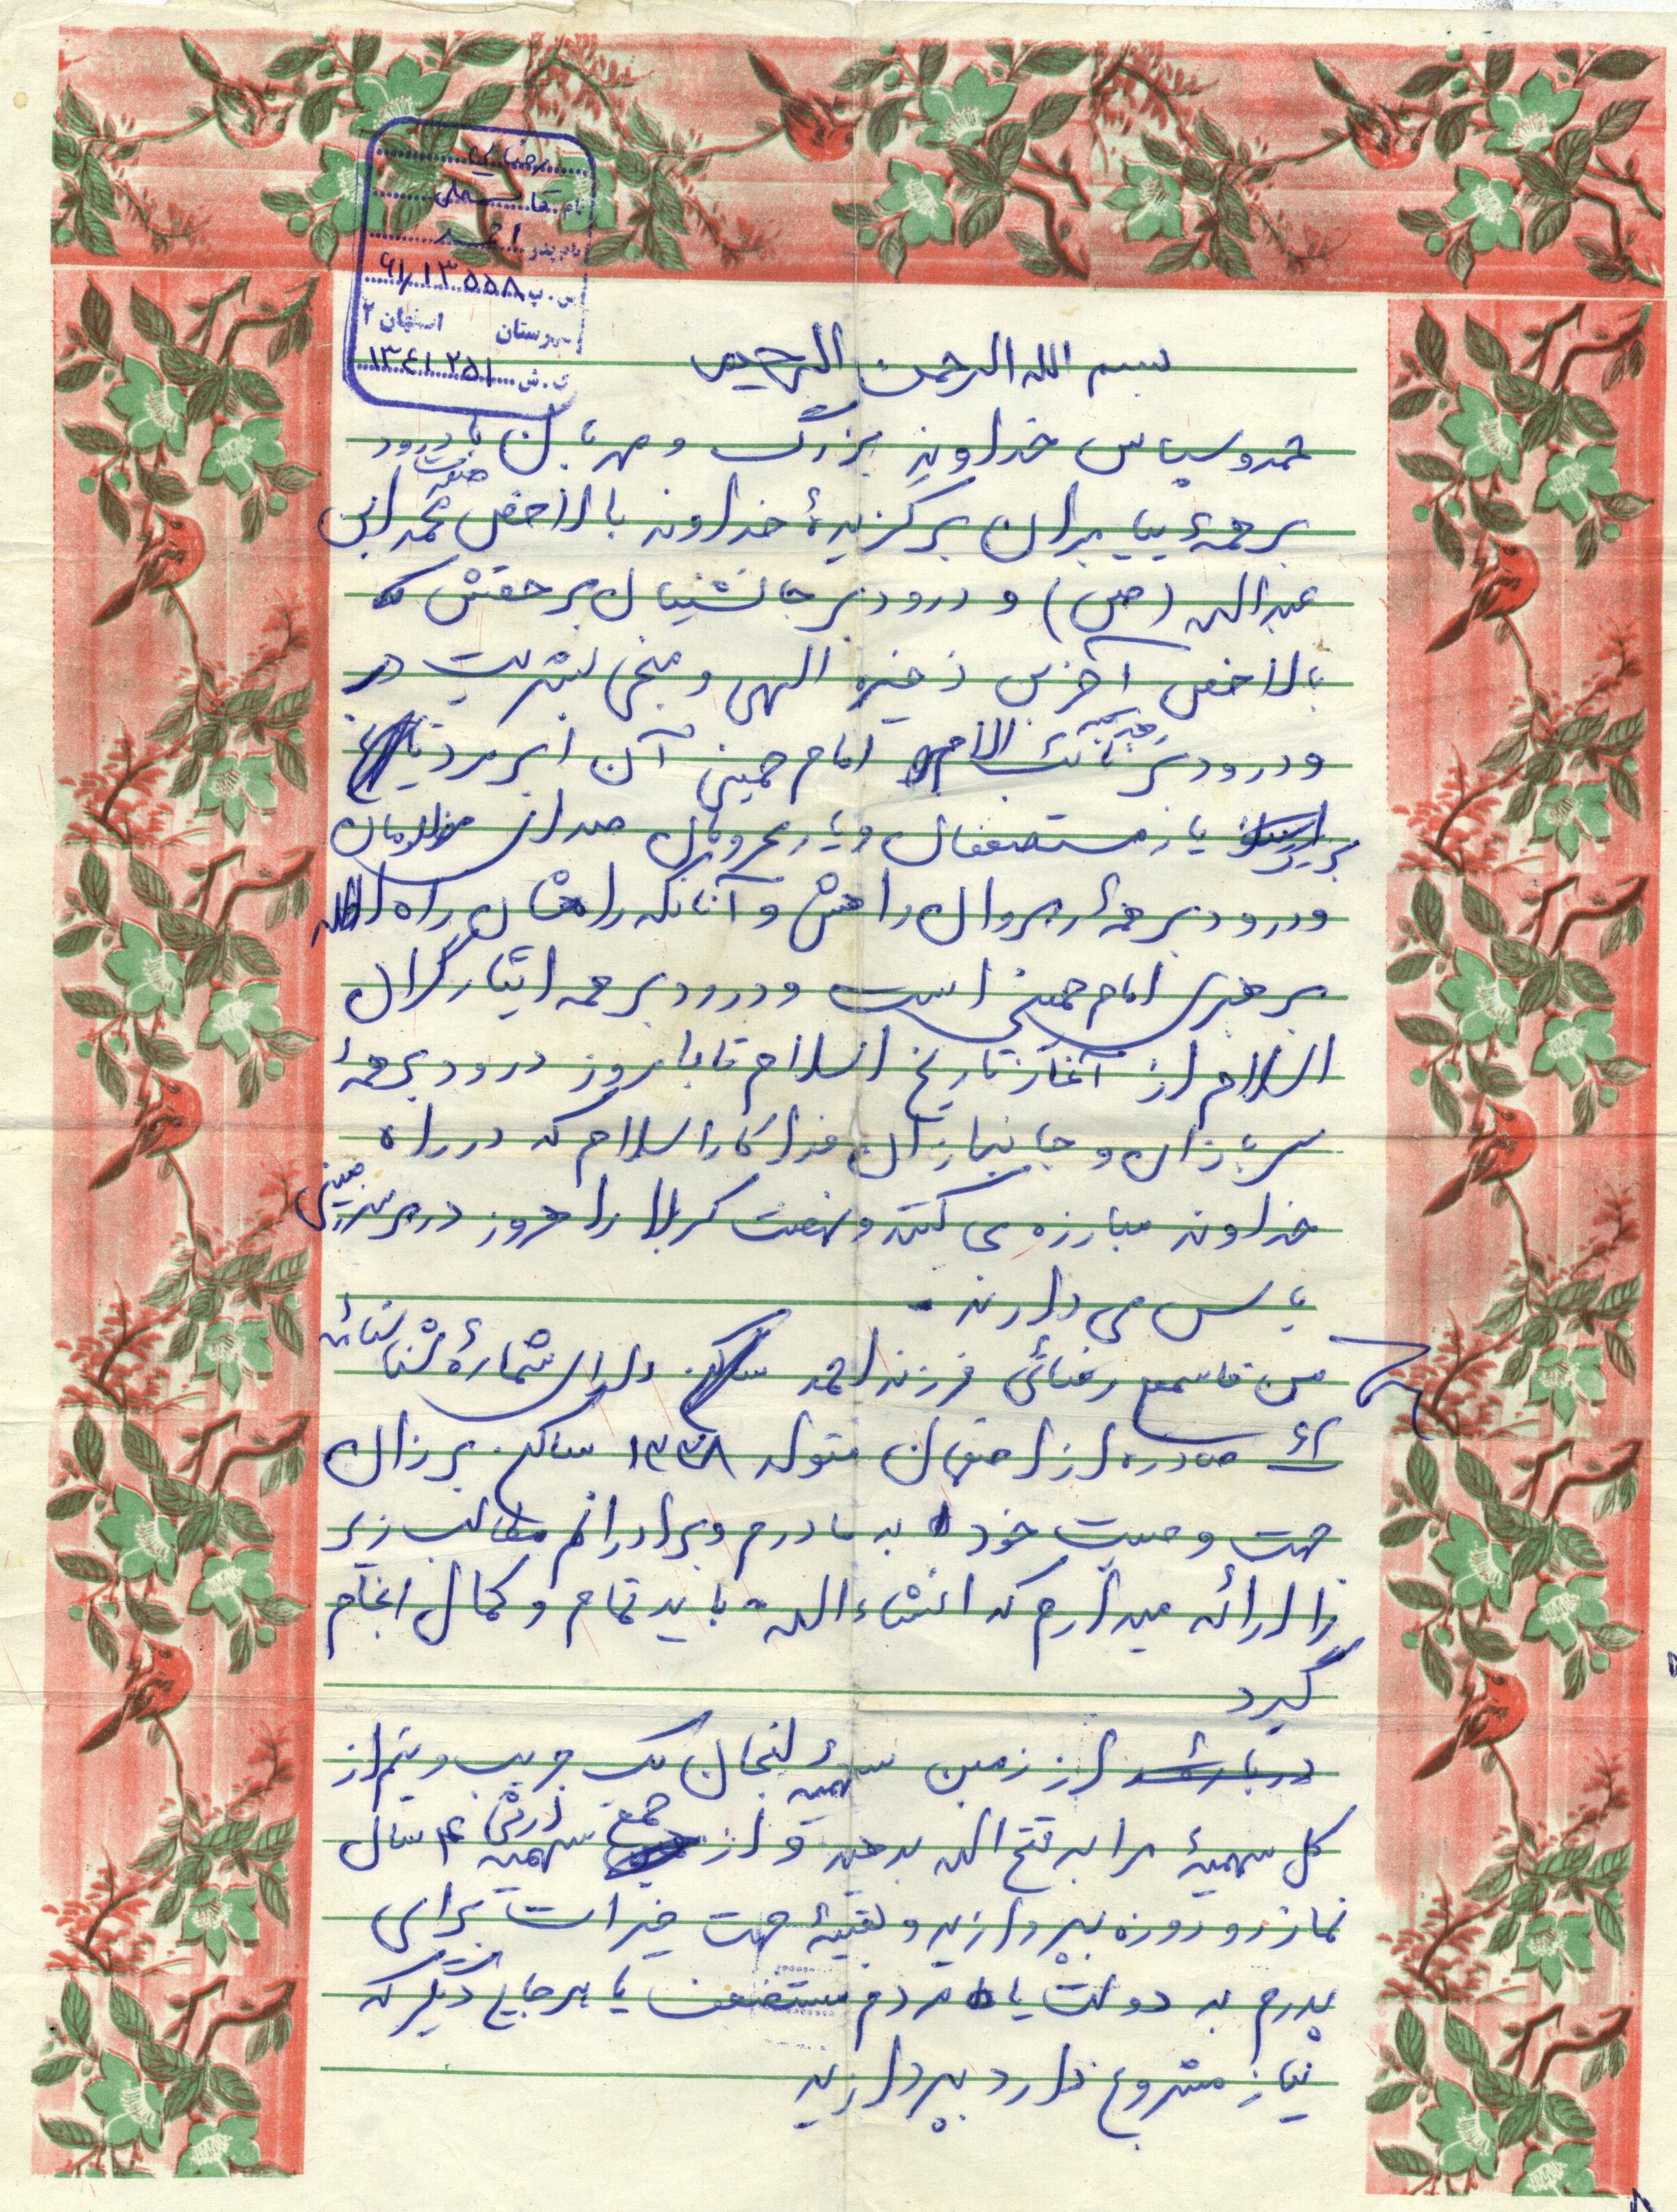 رضایی
نام قاسمعلی
نام پدر احمد
ش.پ ۶۱/۱۳۵۵۸
شهرستان اصفهان ۲
ک.ش ۱۳۴۱۲۵۱
بسم الله الرحمن الرحیم
حمد و سپاس خداوند بزرگ و مهربان با درود
بر همهٔ پیامبران برگزیدهٔ خداوند بالاخص حضرت محمد ابن
عبدالله (ص) و درود بر جانشینان بر حقش که
بالاخص آخرین ذخیره الهی و منجی بشریت
و درود بر نائب الامام امام خمینی آن ابرمرد تاریخ
یار مستضعفان و یار محرومان صدای مظلومان
و درود بر همهٔ رهروان راهش و آنانکه راهشان راه الله
برهبری امام خمینی است و درود بر همه ایثارگران
اسلام از آغاز تاریخ اسلام تا بامروز درود بر همهٔ
سربازان و جانبازان فداکار اسلام که در راه
خداوند مبارزه می کنند و نهضت کربلا را امروز در سرزمین
پاس می دارند
من قاسمعلی رضائی فرزند احمد دارای شمارهٔ شناسنامه
صادره از اصفهان متولد ۱۳۳۸ ساکن برزان
جهت وصیت خود به مادرم و برادرانم مطالب زیر
را ارائه میدارم که انشاءالله باید تمام و کمال انجام
گیرد
از زمین سهمیهٔ لنجان یک جریب و نیم از
کل سهمیهٔ مرا به فتح الله بدهید و از سهمیه ۴ سال
نماز و روزه بپردازید و بقیهٔ جهت خیرات برای
پدرم به دولت یا مردم مستضعف یا هر جای دیگر که
نیاز مشروع دارد بپردازید